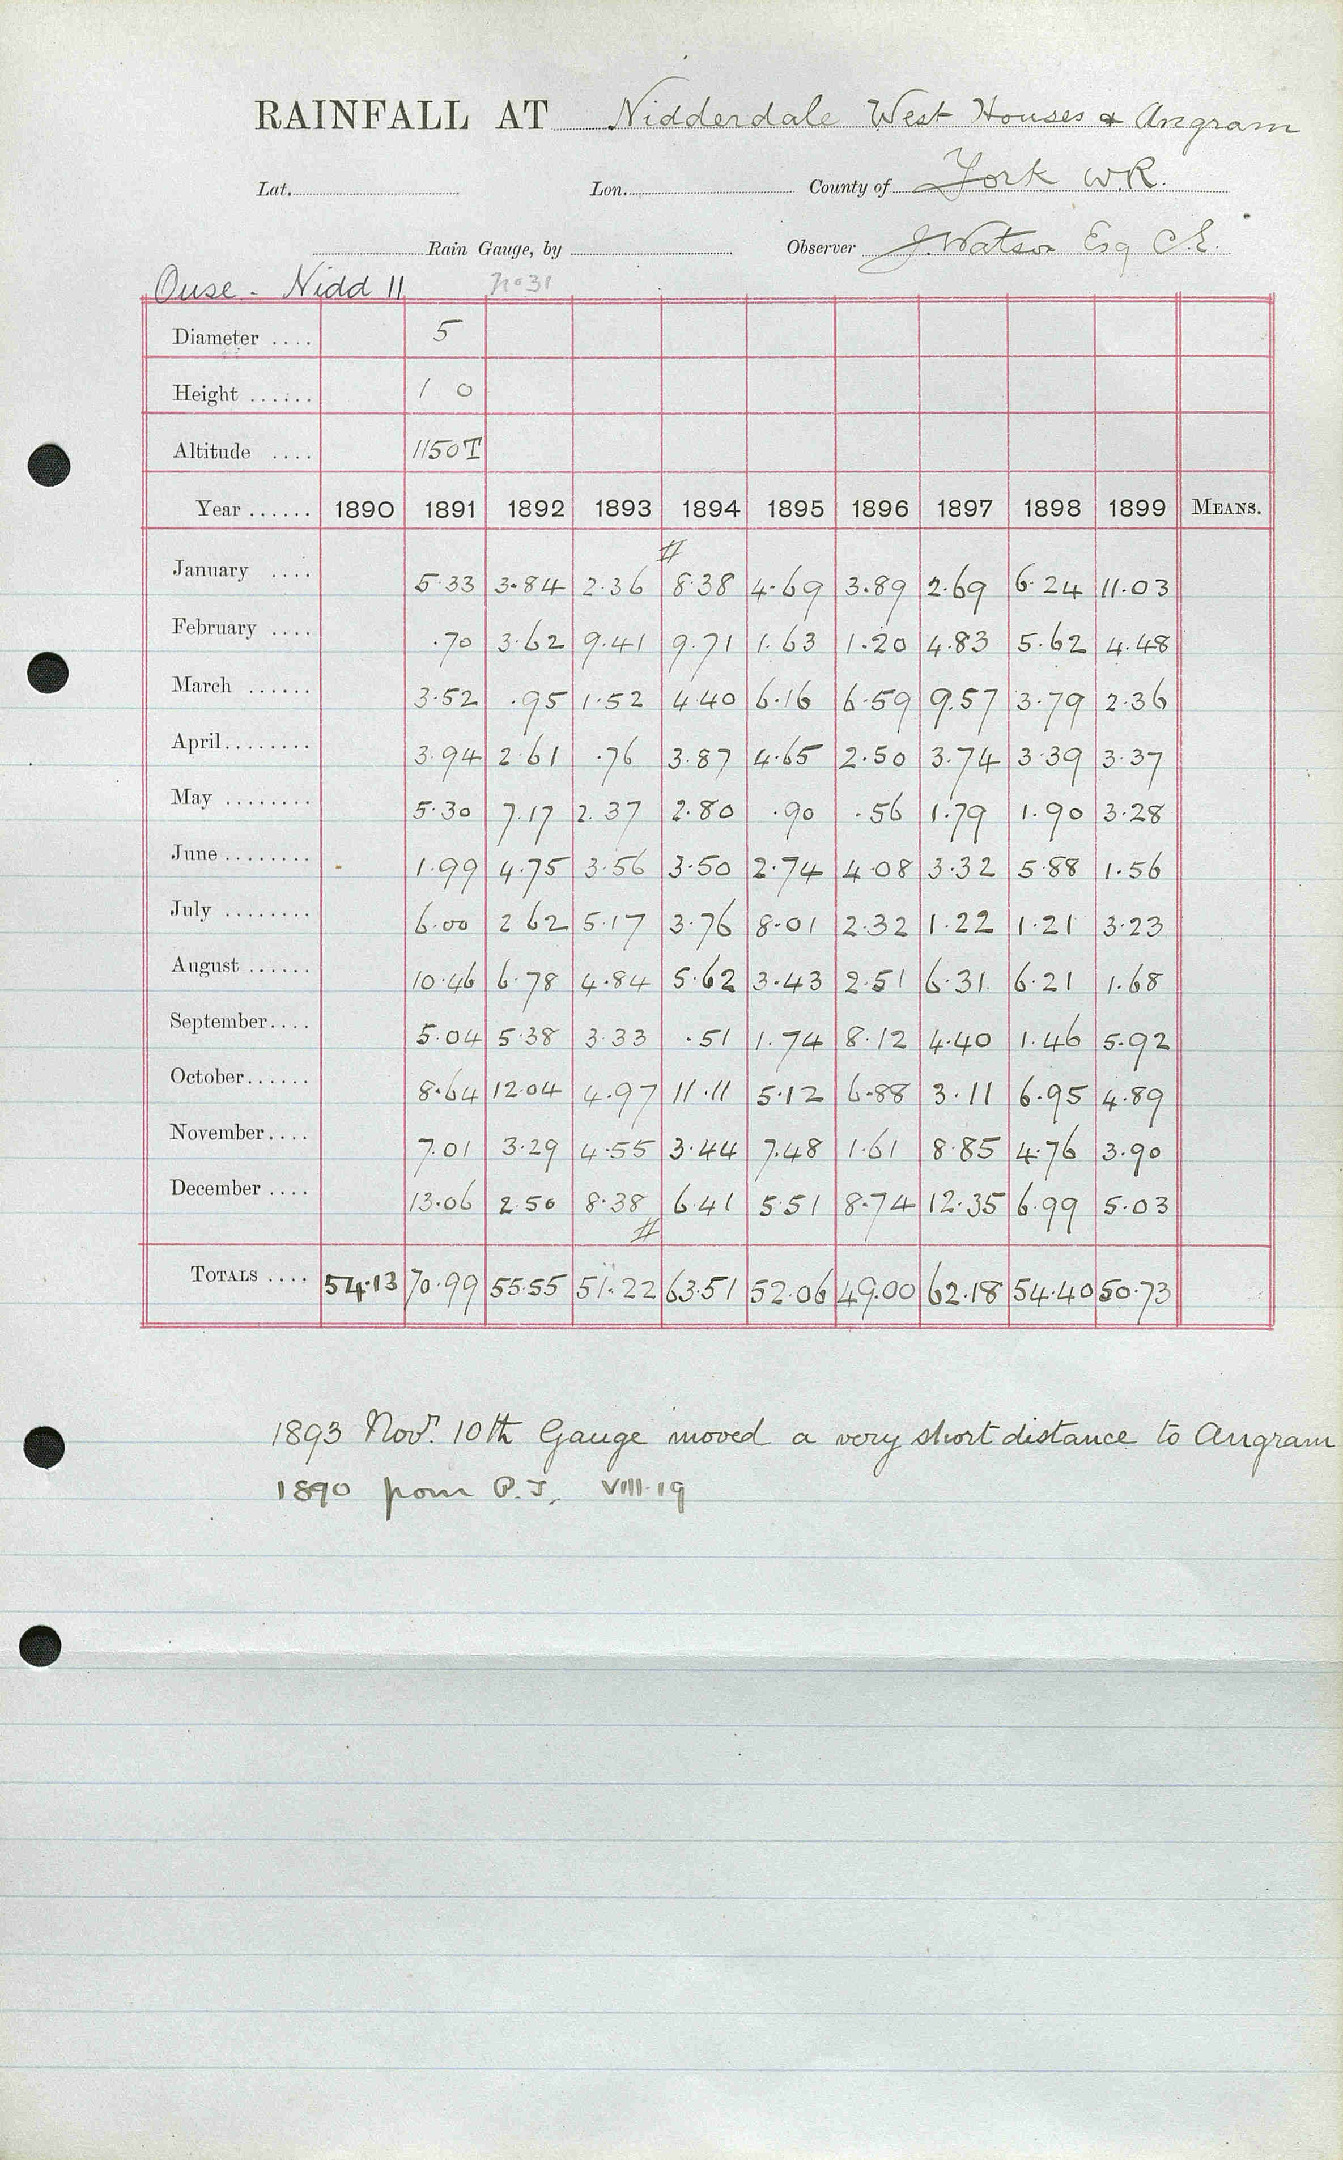 RAINFALL AT Nidderdale West Houses & Angram
Lat. Lon. County of York W.R.
Rain Gauge, by Observer J. Watson Esq C.E.
Ouse - Nidd II No 31
Diameter .... 5
Height ...... 1 0
Altitude .... 1150T
Year ...... 1890 1891 1892 1893 1894 1895 1896 1897 1898 1899 MEANS.
#
January .... 5.33 3.84 2.36 8.38 4.69 3.89 2.69 6.24 11.03
February .... .70 3.62 9.41 9.71 1.63 1.20 4.83 5.62 4.48
March ...... 3.52 .95 1.52 4.40 6.16 6.59 9.57 3.79 2.36
April ........ 3.94 2.61 .76 3.87 4.65 2.50 3.74 3.39 3.37
May ........ 5.30 7.17 2.37 2.80 .90 .56 1.79 1.90 3.28
June ........ 1.99 4.75 3.56 3.50 2.74 4.08 3.32 5.88 1.56
July ........ 6.00 2.62 5.17 3.76 8.01 2.32 1.22 1.21 3.23
August ...... 10.46 6.78 4.84 5.62 3.43 2.51 6.31 6.21 1.68
September .... 5.04 5.38 3.33 .51 1.74 8.12 4.40 1.46 5.92
October ...... 8.64 12.04 4.97 11.11 5.12 6.88 3.11 6.95 4.89
November .... 7.01 3.29 4.55 3.44 7.48 1.61 8.85 4.76 3.90
December .... 13.06 2.50 8.38 6.41 5.51 8.74 12.35 6.99 5.03
#
TOTALS .... 54.13 70.99 55.55 51.22 63.51 52.06 49.00 62.18 54.40 50.73
1893 Novr. 10th Gauge moved a very short distance to Angram
1890 from P.J. VIII.19